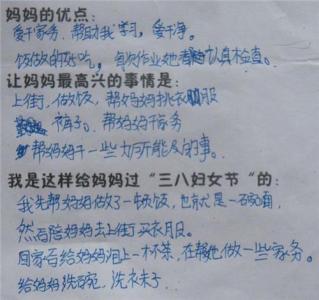 妈妈的优点：
爱干家务，帮助我学习，爱干净。
饭做的好吃，每次作业她都认真检查。
让妈妈最高兴的事情是：
上街，做饭，帮妈妈挑衣服
裤子。帮妈妈干家务
帮妈妈干一些力所能及的事。
我是这样给妈妈过“三八妇女节”的：
我先帮妈妈做了一顿饭，也就是一碗面，
然后陪妈妈去上街买衣服。
回家后给妈妈泡上一杯茶，在帮她做一些家务。
给妈妈洗碗，洗衣